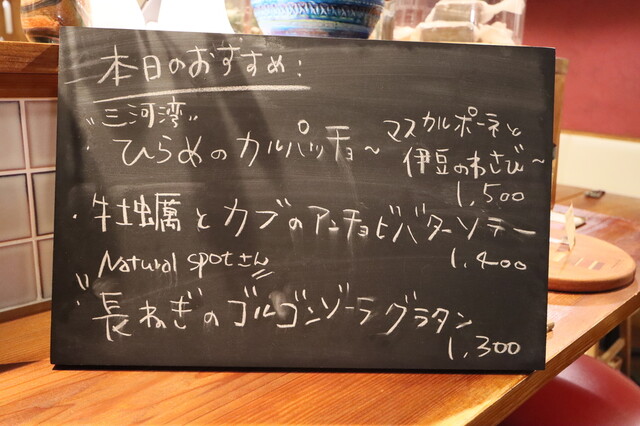 本日のおすすめ:
"三河湾"
・ひらめのカルパッチョ～マスカルポーネと
伊豆のわさび～
1,500
・牡蠣とカブのアンチョビバターソテー
1,400
Natural spotさん
長ねぎのゴルゴンゾーラグラタン
1,300